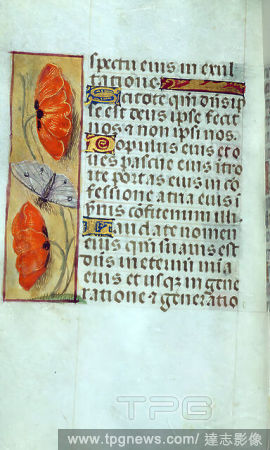 spectu eius in exul
tatione
Scitote qm dns ip
se est deus ipse fecit
nos et non ipsi nos.
Populus eius et o
ues pascue eius itro
ite portas eius in co
fessione atria eius i
ymis cofitemini illi.
Laudate nomen
eius qm suauis est
dns in eternu mia
eius et usqz in gene
ratione et generatio
TPG
www.tpgnews.com/達志影像